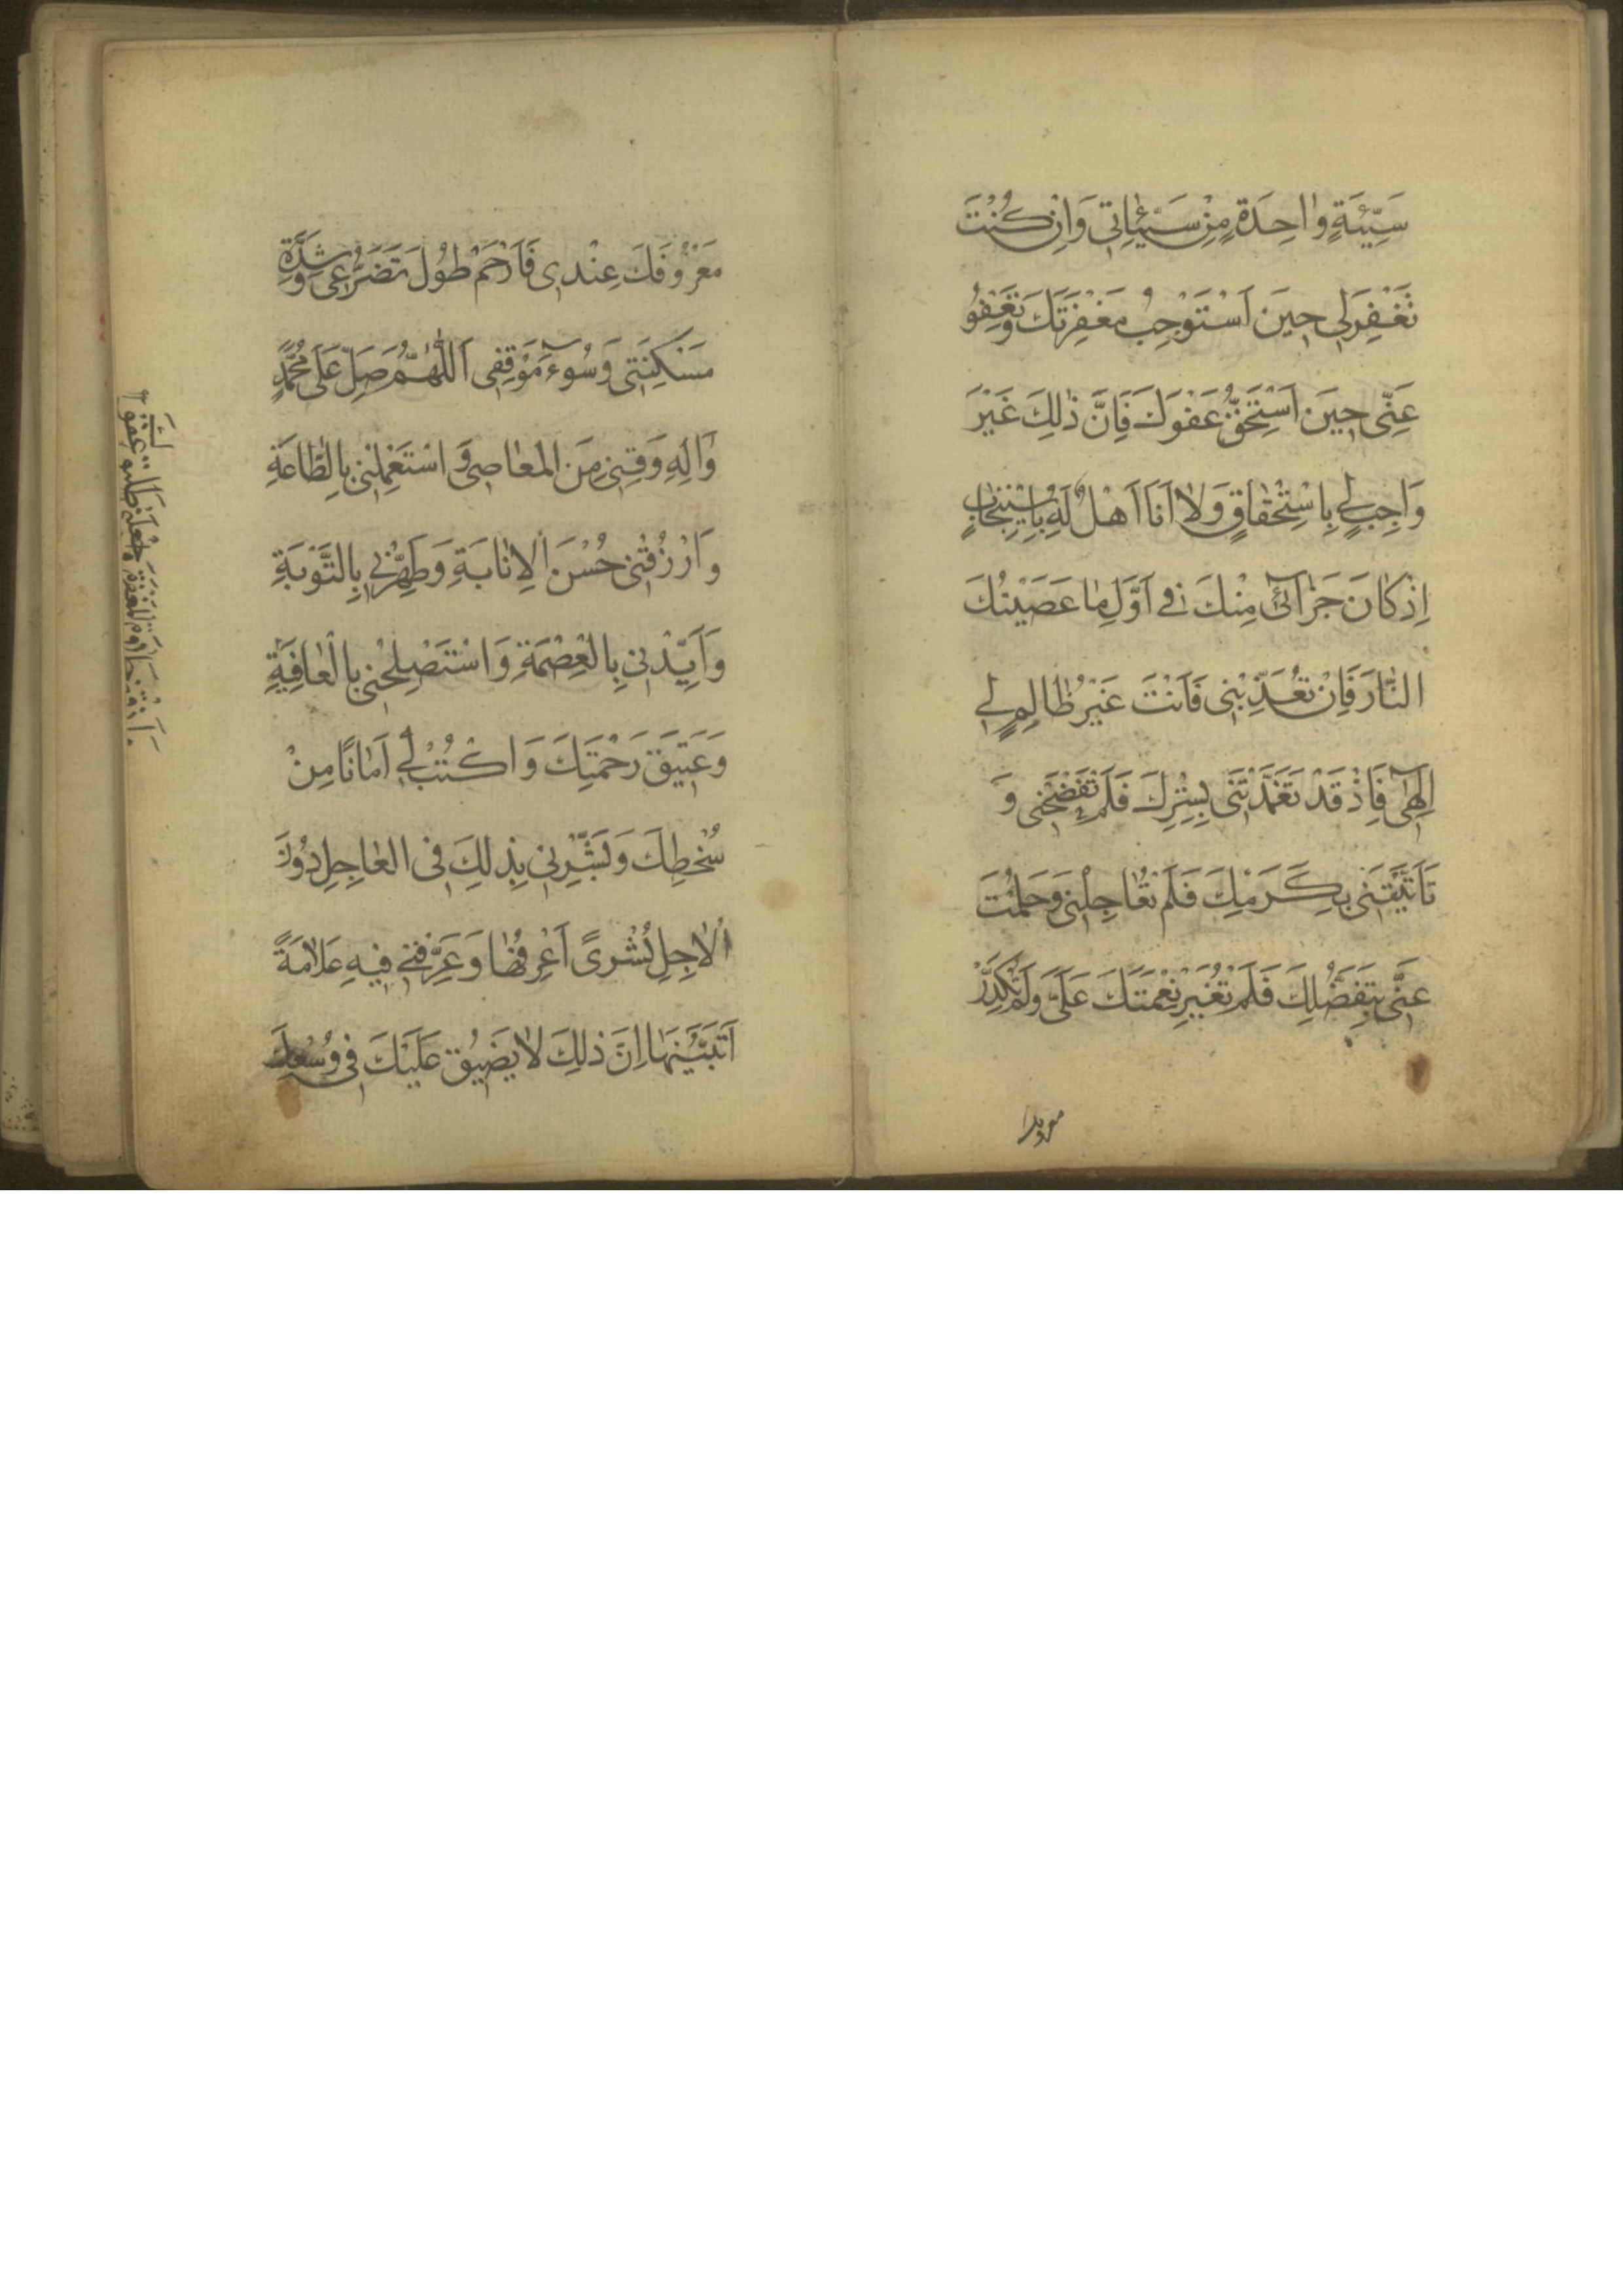 سَيِّئَةٍ وٰاحِدَةٍ مِنْ سَيِّئٰاتِي وَاِنْ كُنْتَ
تَغْفِرُ لِي حِينَ اَسْتَوْجِبُ مَغْفِرَتَكَ وَتَعْفُو
عَنِّي حِينَ اَسْتَحِقُّ عَفْوَكَ فَاِنَّ ذٰلِكَ غَيْرُ
وَاجِبٍ لِي بِاسْتِحْقٰاقٍ وَلٰا اَنَا اَهْلٌ لَهُ بِاسْتِيجٰابٍ
اِذْ كٰانَ جَزٰآئِي مِنْكَ فِي اَوَّلِ مٰا عَصَيْتُكَ
النّٰارَ فَاِنْ تُعَذِّبْنِي فَاَنْتَ غَيْرُ ظٰالِمٍ لِي
اِلٰهِي فَاِذْ قَدْ تَغَمَّدْتَنِي بِسِتْرِكَ فَلَمْ تَفْضَحْنِي وَ
تَاَنَّيْتَنِي بِكَرَمِكَ فَلَمْ تُعٰاجِلْنِي وَحَلُمْتَ
عَنِّي بِتَفَضُّلِكَ فَلَمْ تُغَيِّرْ نِعْمَتَكَ عَلَيَّ وَلَمْ تُكَدِّرْ
معروفك
مَعْرُوفَكَ عِنْدِي فَارْحَمْ طُولَ تَضَرُّعِي وَشِدَّةَ
مَسْكَنَتِي وَسُوءَ مَوْقِفِي اَللّٰهُمَّ صَلِّ عَلَى مُحَمَّدٍ
وَاٰلِهِ وَقِنِي مِنَ الْمَعٰاصِي وَاسْتَعْمِلْنِي بِالطّٰاعَةِ
وَارْزُقْنِي حُسْنَ الْاِنٰابَةِ وَطَهِّرْنِي بِالتَّوْبَةِ
وَاَيِّدْنِي بِالْعِصْمَةِ وَاسْتَصْلِحْنِي بِالْعٰافِيَةِ
وَعَتِيقَ رَحْمَتِكَ وَاكْتُبْ لِي اَمٰانًا مِنْ
سُخْطِكَ وَبَشِّرْنِي بِذٰلِكَ فِي الْعٰاجِلِ دُونَ
الْاٰجِلِ بُشْرىً اَعْرِفُهٰا وَعَرِّفْنِي فِيهِ عَلٰامَةً
اَتَبَيَّنُهٰا اِنَّ ذٰلِكَ لٰا يَضِيقُ عَلَيْكَ فِي وُسْعِكَ
وَاَذِقْنِي حَلٰاوَةَ الْمَغْفِرَةِ وَاجْعَلْنِي طَلِيقَ عَفْوِكَ